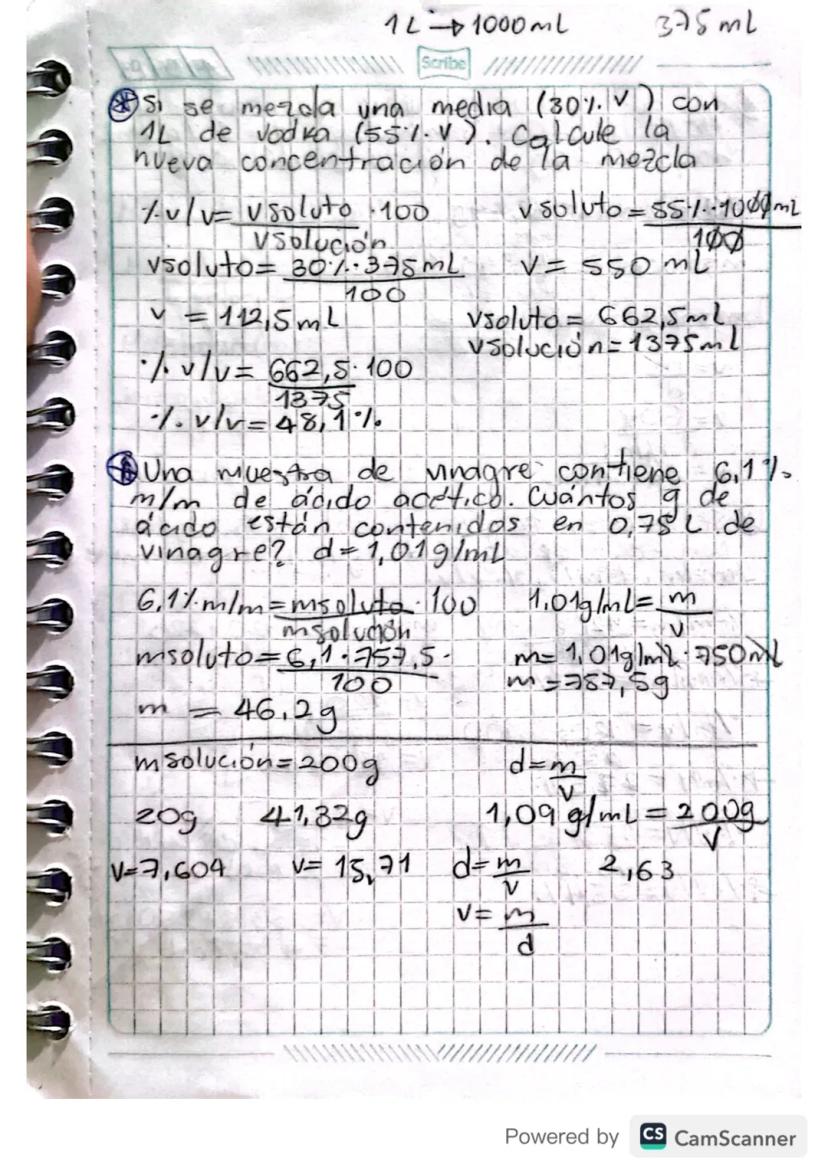 1L → 1000mL 375 mL
Scribe
Si se mezcla una media (30%.V) con
1L de vodka (55%.V). Calcule la
nueva concentración de la mezcla
%v/v= vsoluto/vsolución ·100 vsoluto=55%·1000mL/100
vsoluto= 30%·375mL/100 v= 550 mL
v = 112,5mL vsoluto= 662,5mL
vsolución=1375mL
%v/v= 662,5·100/1375
%.v/v= 48,1%
Una muestra de vinagre contiene 6,1%
m/m de ácido acético. Cuántos g de
ácido están contenidos en 0,75L de
vinagre? d=1,01g/mL
6,1%m/m=msoluto/msolución ·100 1,01g/mL= m/v
msoluto=6,1·757,5/100 m=1,01g/mL·750mL
m=757,5g
m = 46,2g
msolución=200g d=m/v
20g 41,32g 1,09 g/mL = 200g/V
V=7,604 v= 15,71 d=m/v 2,63
v= m/d
Powered by CS CamScanner